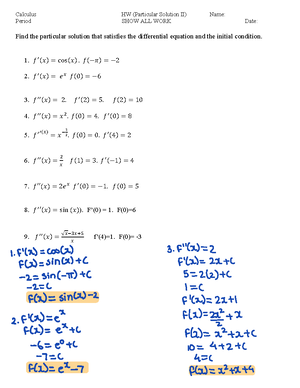 Calculus HW (Particular Solution II) Name
Period SHOW ALL WORK Date
Find the particular solution that satisfies the differential equation and the initial condition.
1. f'(x) = cos(x). f(−π) = −2
2. f'(x) = e^x f(0) = −6
3. f''(x) = 2. f'(2) = 5. f(2) = 10
4. f''(x) = x². f'(0) = 4. f'(0) = 8
5. f''(x) = f'(0) = 0. f'(4) = 2
6. f''(x) = 2/x f(1) = 3. f'(−1) = 4
7. f''(x) = 2e^x f'(0) = −1. f(0) = 5
8. f''(x) = sin(x). F'(0) = 1. F(0)=6
9. f''(x) = f'(4)=1. F(0)= -3
1. F'(x) = cos(x)
F(x) = sin(x) + C
-2 = sin(-π) + C
-2 = C
F(x) = sin(x) - 2
2. F'(x) = e^x
F(x) = e^x + C
-6 = e^0 + C
-7 = C
F(x) = e^x - 7
3. F''(x) = 2
F'(x) = 2x + C
5 = 2(2) + C
1 = C
F'(x) = 2x + 1
F(x) = 2x²/2 + x
F(x) = x² + x + C
10 = 4 + 2 + C
4 = C
F(x) = x² + x + 4